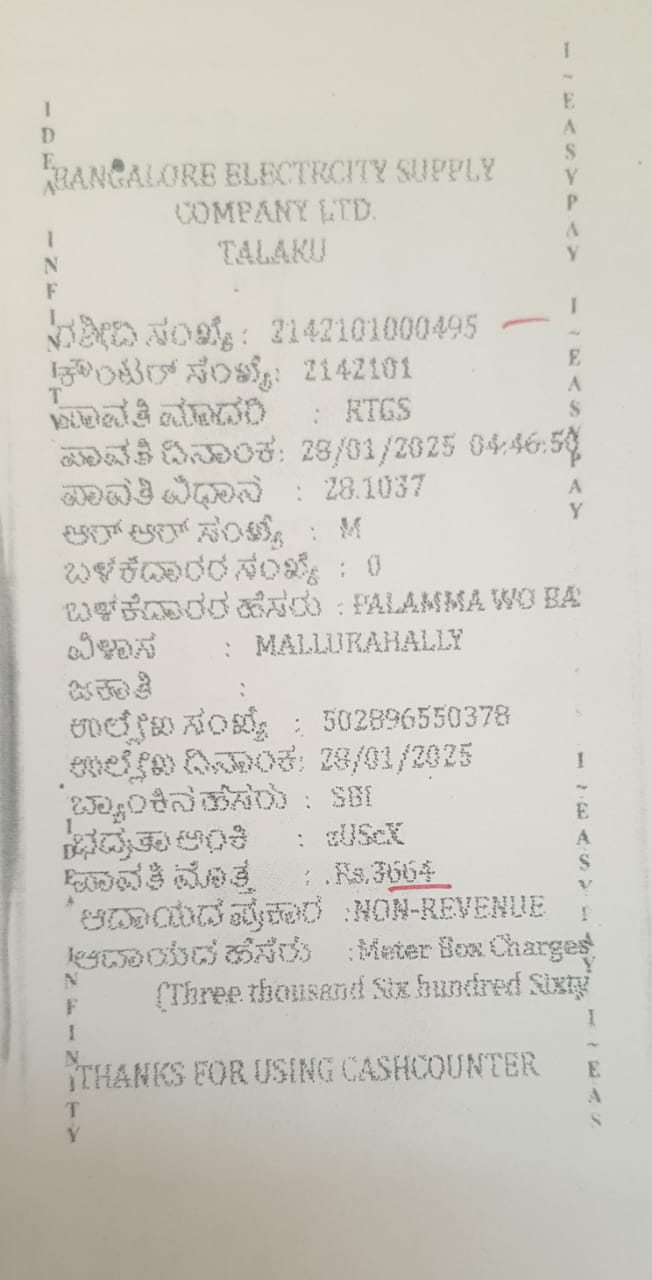 BANGALORE ELECTRCITY SUPPLY
COMPANY LTD.
TALAKU
ರಶೀದಿ ಸಂಖ್ಯೆ : 2142101000495
ಕೌಂಟರ್ ಸಂಖ್ಯೆ : 2142101
ಪಾವತಿ ಮಾದರಿ : RTGS
ಪಾವತಿ ದಿನಾಂಕ: 28/01/2025 04:46:50
ಪಾವತಿ ವಿಧಾನ : 28.1037
ಆರ್ ಆರ್ ಸಂಖ್ಯೆ : M
ಬಳಕೆದಾರರ ಸಂಖ್ಯೆ : 0
ಬಳಕೆದಾರರ ಹೆಸರು : PALAMMA WO BA
ವಿಳಾಸ : MALLURAHALLY
ಜಕಾತಿ :
ಉಲ್ಲೇಖ ಸಂಖ್ಯೆ : 502896550378
ಉಲ್ಲೇಖ ದಿನಾಂಕ: 28/01/2025
ಬ್ಯಾಂಕಿನ ಹೆಸರು : SBI
ಭದ್ರತಾ ಅಂಕಿ : zUScX
ಪಾವತಿ ಮೊತ್ತ : .Rs.3664
ಆದಾಯದ ಪ್ರಕಾರ :NON-REVENUE
ಆದಾಯದ ಹೆಸರು :Meter Box Charges
(Three thousand Six hundred Sixty
THANKS FOR USING CASHCOUNTER
IDEA INFINITY
IDEA INFINITY
I~EASYPAY I~EASYPAY
I~EASYPAY I~EAS